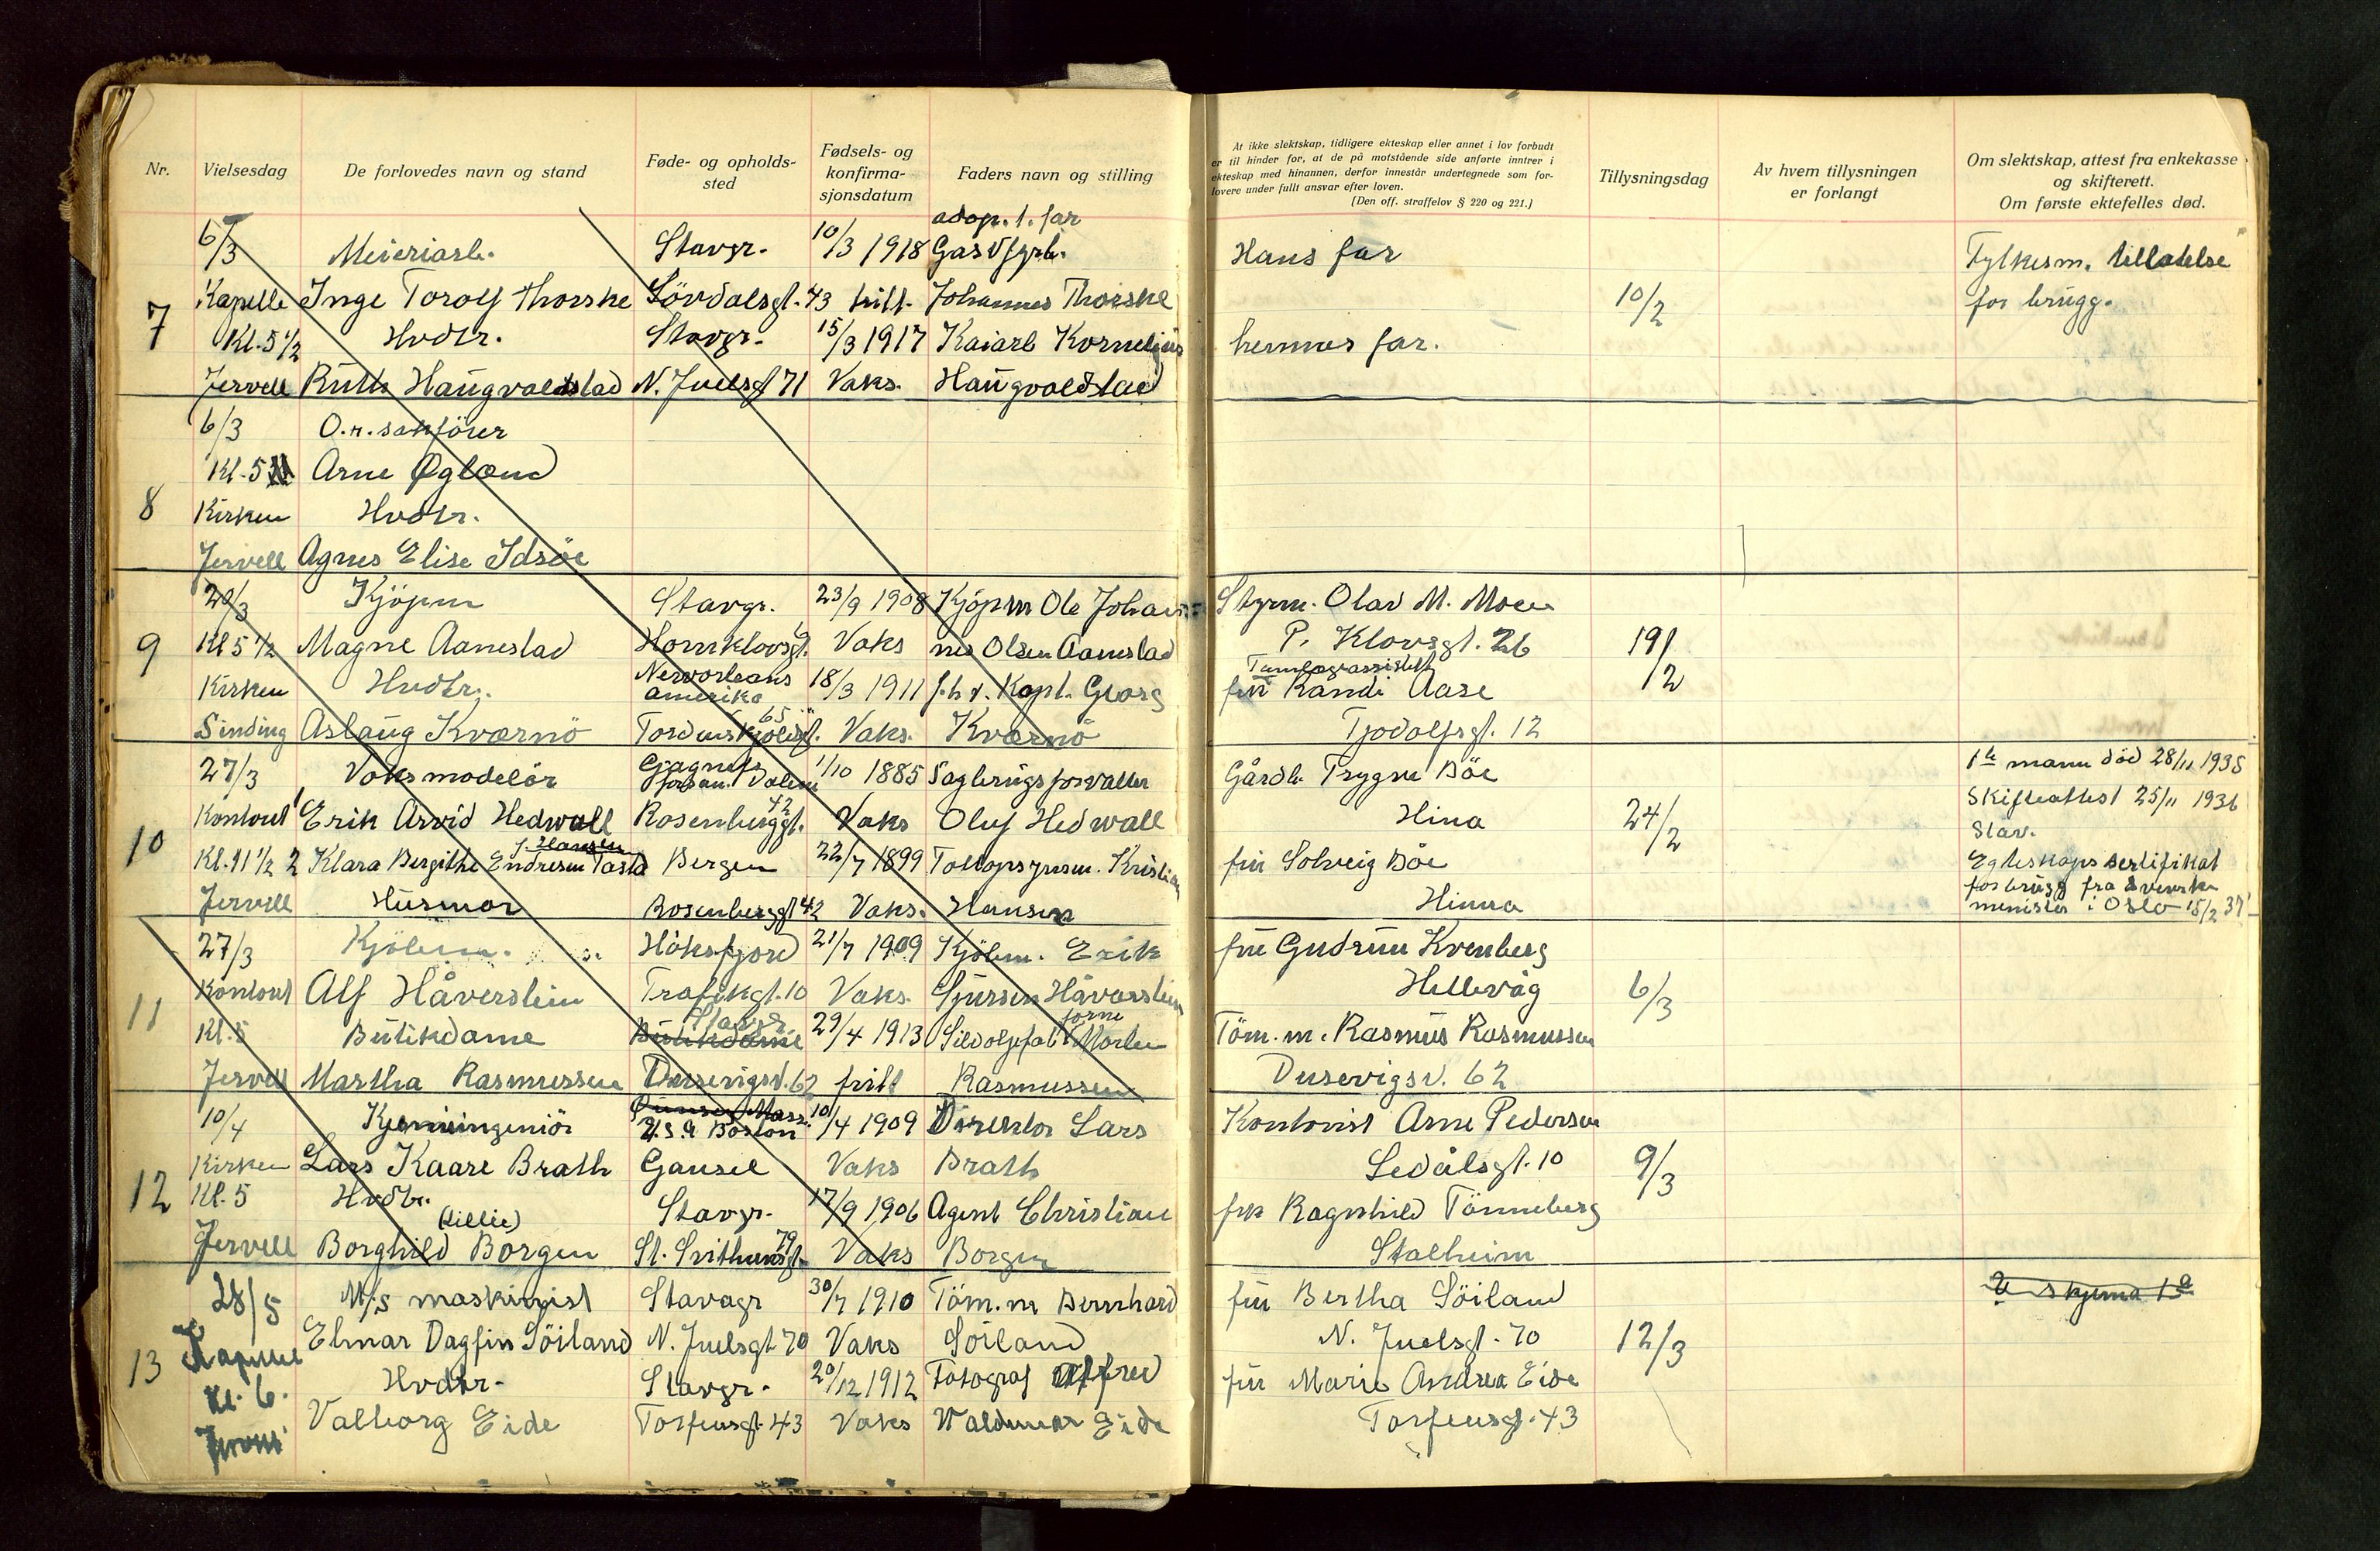 Nr.
Vielsesdag
De forlovedes navn og stand
Føde- og opholds-
sted
Fødsels- og
konfirma-
sjonsdatum
Faders navn og stilling
adop. f. far
6/3 Meieriarb. Stavgr. 10/3 1918 Gasvfyrb.
7 Kapelle Inge Torolf Thorske Lövdalsgt. 43 fritt. Johannes Thorske
Kl. 5 1/2 Hvdtr. Stavgr. 15/3 1917 Kaiarb Kornelius
Jervell Ruth Haugvaldstad N. Juelsgt 71 Vaks. Haugvaldstad
6/3 O.r. sakförer
Kl. 5
Arne Øgland
8 Kirken Hvdtr.
Jervell Agnes Elise Idsöe
20/3 Kjöpm Stavgr. 23/9 1908 Kjöpm Ole Johan-
9 Kl 5 1/2 Magne Aanestad Hornklovsgt. Vaks nes Olsen Aanestad
Kirken Hvdtr. Neworleans
Amerika 18/3 1911 f.h.v. Kapt. Georg
65
Sinding Aslaug Kværnö Tordenskjoldsgt. Vaks. Kværnö
27/3 Voksmodelör 1/10 1885 Sagbrugsforvalter
42
10 Kontoret 1 Erik Arvid Hedwall Rosenberggt. Vaks Oluf Hedwall
f. Hansen
Kl. 11 1/2 2 Klara Bergithe Endresen Tasta Bergen 22/7 1899 Toldopsynsm. Kristian
Jervell Husmor Rosenberggt 42 Vaks. Hansen
27/3 Kjöbm. Höksfjord 21/7 1909 Kjöbm. Erik
11 Kontoret Alf Håverstein Trafikgt. 10 Vaks. Sjursen Håvarstein
Stavgr. forme
Kl. 5 Butikdame Butikdame 29/4 1913 Sildoljefab Morten
Jervell Martha Rasmussen Dusevigsv. 62 fritt Rasmussen
10/4 Kjemiingeniör
U.S.A Boston 10/4 1909 Direktor Lars
Kirken Lars Kaare Brath Gausel Vaks Brath
12 Kl. 5 Hvdtr. Stavgr. 17/9 1906 Agent Christian
(Lillie) 79
Jervell Borghild Borgen St. Svithunsgt. Vaks Borgen
28/5 M/S maskinist Stavagr 30/7 1910 Töm.m Bernhard
13 Kapellet Elmar Dagfin Söiland N. Juelsgt 70 Vaks Söiland
Kl. 6. Hvdtr. Stavgr. 20/12 1912 Fotograf Alfred
Jervell Valborg Eide Torfeusgt. 43 Vaks Waldemar Eide
At ikke slektskap, tidligere ekteskap eller annet i lov forbudt
er til hinder for, at de på motstående side anførte inntrer i
ekteskap med hinannen, derfor innestår undertegnede som for-
lovere under fullt ansvar efter loven.
(Den off. straffelov § 220 og 221.)
Tillysningsdag
Av hvem tillysningen
er forlangt
Om slektskap, attest fra enkekasse
og skifterett.
Om første ektefelles død.
Hans far Fylkesm. tillatelse
10/2 for brugg.
hennes far.
Styrm. Olav M. Moen
P. Klovsgt. 26 19/2
Tannlegeassistent
fru Randi Aase
Tjodolfsgt. 12
Gårdb. Trygve Böe 1ste mann död 28/11 1935
Hina 24/2 Skifteattest 25/11 1936
Stav.
fru Solveig Böe Egteskaps sertifikat
for brugg fra Svenske
Hinna minister i Oslo 15/2 37
fru Gudrun Kvenberg
Hellevåg 6/3
Töm. m. Rasmus Rasmussen
Dusevigsv. 62
Kontorist Arne Pedersen
Ledålsgt. 10 9/3
frk Ragnhild Tönneberg
Stalheim
fru Bertha Söiland 2 skjema 1a
N. Juelsgt. 70 12/3
fru Marie Andrea Eide
Torfeusgt. 43